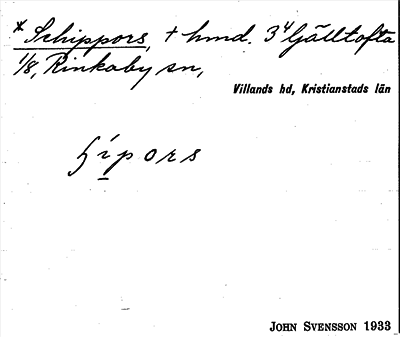 * Schippors, + hmd. 3⁴ Gjälltofta
1/8, Rinkaby sn,
Villands hd, Kristianstads län
ʃípors
JOHN SVENSSON 1933